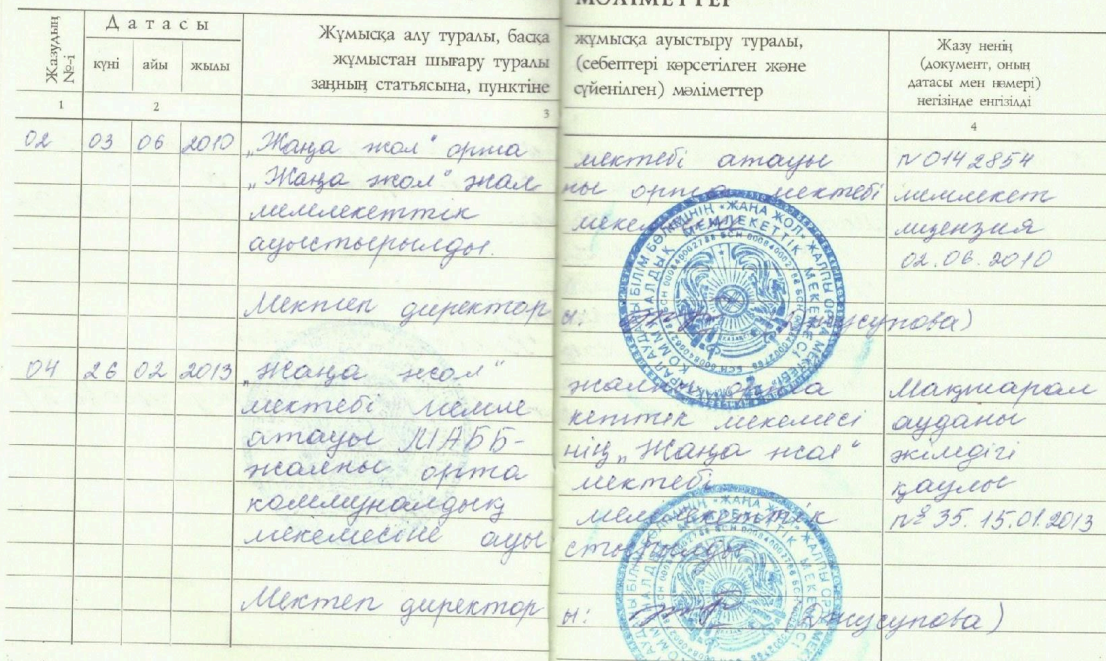 МӘЛІМЕТТЕР
Жазудың №-і
Датасы
күні айы жылы
Жұмысқа алу туралы, басқа жұмысқа ауыстыру туралы,
жұмыстан шығару туралы (себептері көрсетілген және
заңның статьясына, пунктіне сүйенілген) мәліметтер
Жазу ненің
(документ, оның
датасы мен нөмері)
негізінде енгізілді
1 2 3 4
02 03 06 2010 „Жаңа жол“ орта мектебі атауы N 0142854
„Жаңа жол“ жалпы орта мектебі мемлекет
мемлекеттік лицензия
ауыстырылды. 02.06.2010
Мектеп директоры: (Джусупова)
04 26 02 2013 „Жаңа жол“ жалпы орта Мақтарал
мектебі мемлекеттік мекемесі ауданы
атауы МАББ-нің „Жаңа жол“ әкімдігі
жалпы орта мектебі қаулы
коммуналдық мемлекеттік №35. 15.01.2013
мекемесіне ауыстырылды
Мектеп директоры: (Джусупова)